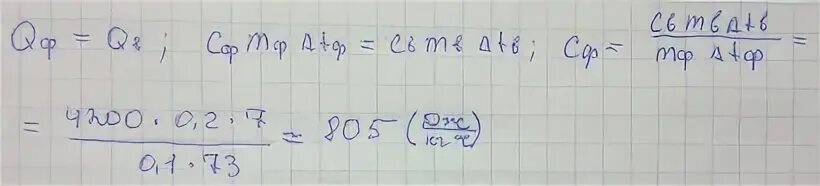 Qф = Qв ; Cф mф Δtф = Cв mв Δtв ; Cф = Cв mв Δtв / mф Δtф =
= 4200 · 0,2 · 7 / 0,1 · 73 = 805 (Дж / кг °C)